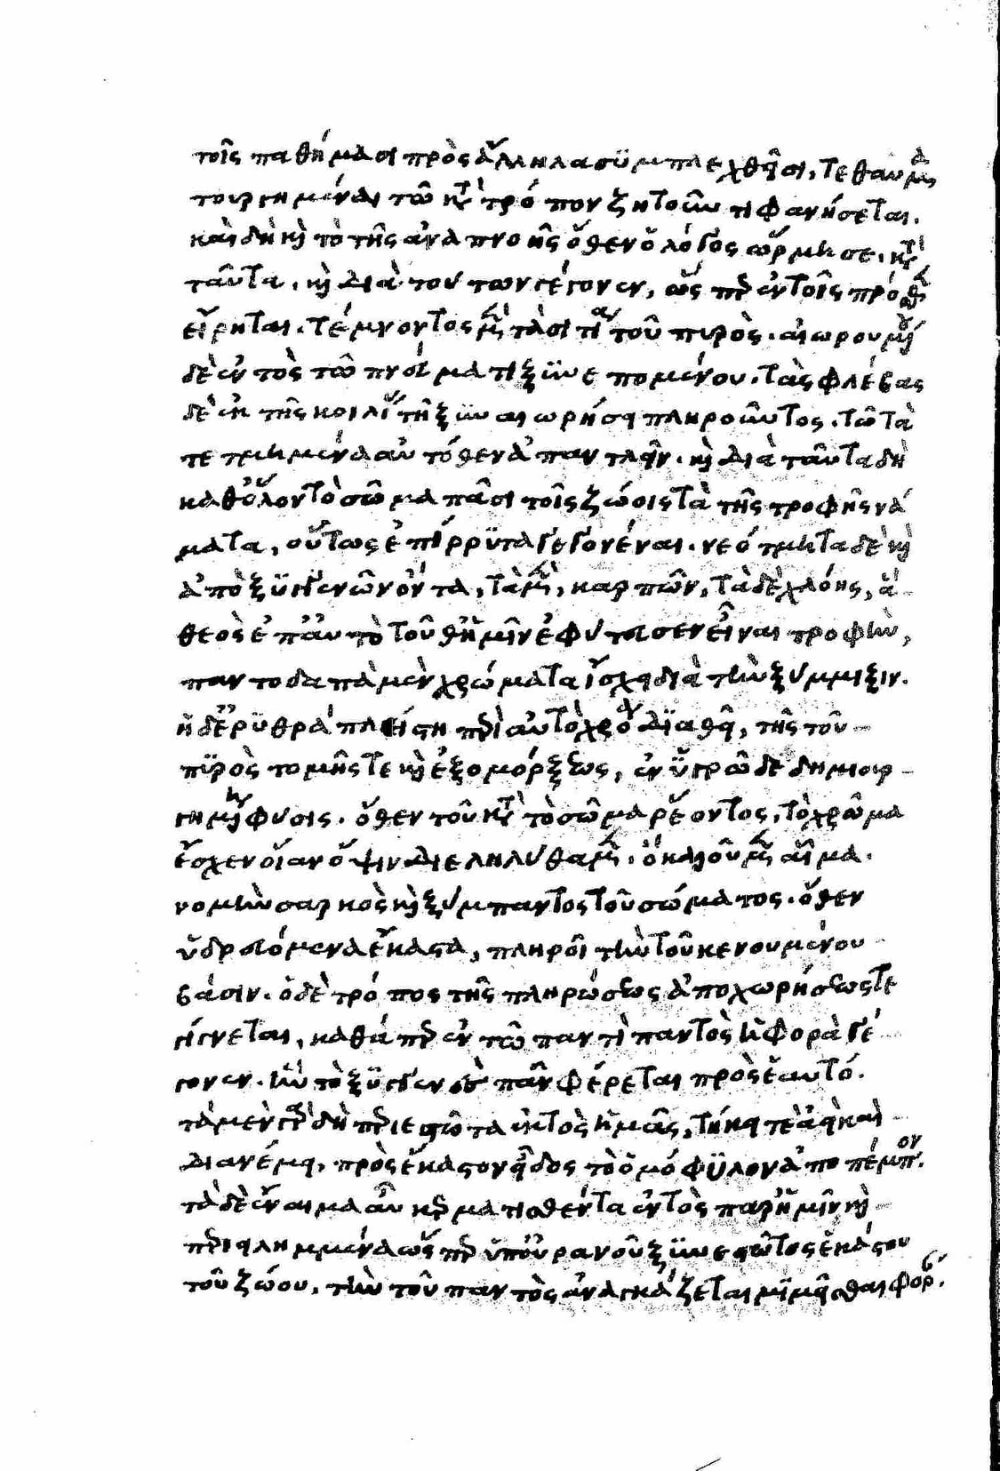 τοῖς παθήμασι πρὸς ἄλληλα συμπλεχθεῖσι, τεθαυμα
τουργημένα τῶ κατὰ τρόπον ζητοῦντι φανήσεται.
καὶ δὴ καὶ τὸ τῆς ἀναπνοῆς ὅθεν ὁ λόγος ὥρμησε. κατὰ
ταῦτα, καὶ διὰ τούτων γέγονεν, ὥσπερ ἐν τοῖς πρόσθεν
εἴρηται. τέμνοντος μὲν τὰ σιτία τοῦ πυρὸς. αἰωρουμένου
δὲ ἐντὸς τῶ πνεύματι ξυνεπομένου. τὰς φλέβας
δὲ ἐκ τῆς κοιλίας τῆ ξυναιωρήσει πληροῦντος. τῶ τὰ
τετμημένα αὐτόθεν ἐπαντλεῖν. καὶ διὰ ταῦτα δὴ
καθ' ὅλον τὸ σῶμα πᾶσι τοῖς ζώοις τὰ τῆς τροφῆς νά
ματα, οὕτως ἐπίρρυτα γέγονέναι. νεότμητα δὲ καὶ
ἀπὸ ξυγγενῶν ὄντα, τὰ μὲν, καρπῶν, τὰ δὲ χλόης, ἃ
θεὸς ἐπ' αὐτὸ τοῦθ' ἡμῖν ἐφύτευσεν εἶναι τροφὴν,
παντοδαπὰ μὲν χρώματα ἴσχει διὰ τὴν ξύμμιξιν.
ἡ δ' ἐρυθρὰ πλείστη περὶ αὐτὸ χρόα διαθεῖ, τῆς τοῦ
πυρὸς τομῆς τε καὶ ἐξομόρξεως, ἐν ὑγρῶ δεδημιουρ
γημένη φύσις. ὅθεν τοῦ κατὰ τὸ σῶμα ῥέοντος, τὸ χρῶμα
ἔσχεν οἵαν ὄψιν διεληλύθαμεν. ὃ καλοῦμεν αἷμα.
νομὴν σαρκὸς καὶ ξύμπαντος τοῦ σώματος. ὅθεν
ὑδρευόμενα ἕκαστα, πληροῖ τὴν τοῦ κενουμένου
βάσιν. ὁ δὲ τρόπος τῆς πληρώσεως ἀποχωρήσεώς τε
γίγνεται, καθάπερ ἐν τῶ παντὶ παντὸς ἡ φορὰ γέ
γονεν. ἣν τὸ ξυγγενὲς πᾶν φέρεται πρὸς ἑαυτό.
τὰ μὲν γὰρ δὴ περιεστῶτα ἐκτὸς ἡμᾶς, τήκει τε ἀεὶ καὶ
διανέμει, πρὸς ἕκαστον εἶδος τὸ ὁμόφυλον ἀποπέμπον.
τὰ δὲ ἔναιμα αὖ κερματισθέντα ἐντὸς παρ' ἡμῖν καὶ
περιειλημμένα ὥσπερ ὑπ' οὐρανοῦ ξυνεστῶτος ἑκάστου
τοῦ ζώου, τὴν τοῦ παντὸς ἀναγκάζεται μιμεῖσθαι φοράν.